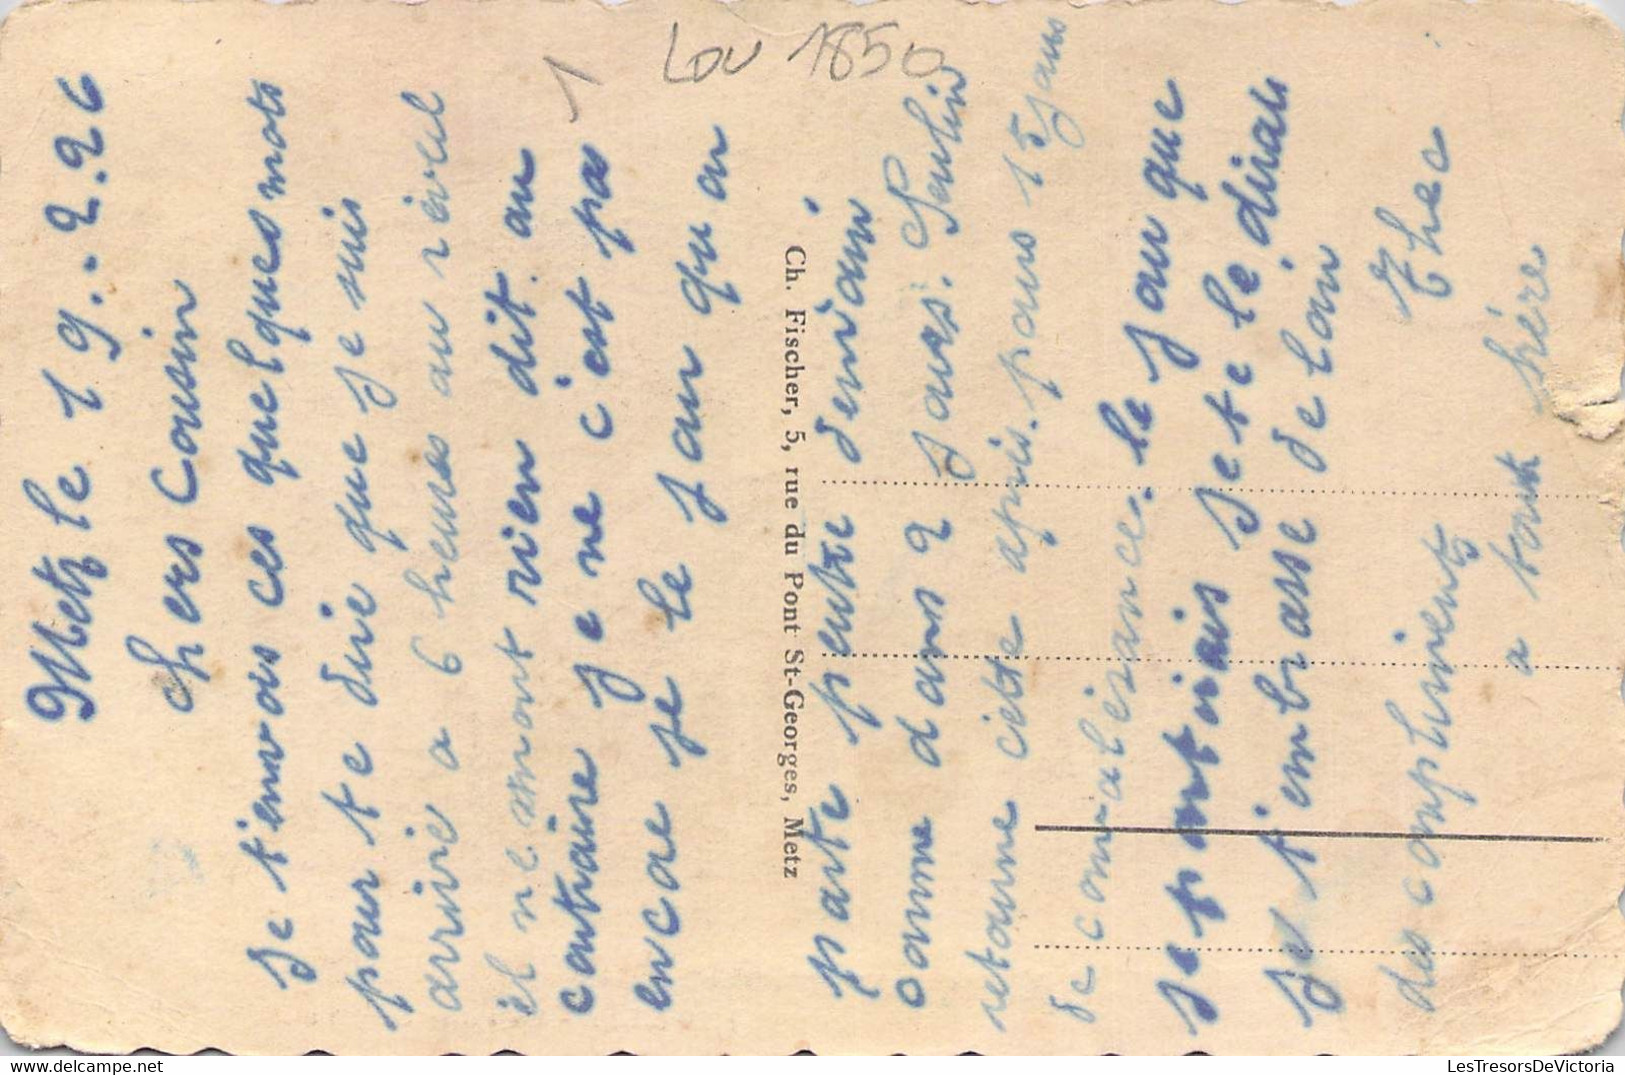 Metz le 19..2.26
chers cousin
je t'envois ces quelques mots
pour te dire que je suis
arrivé a 6 heures au réveil
il ne mont rien dit. au
contraire je ne c'est pas
encore je le jour qu on
Ch. Fischer, 5, rue du Pont St-Georges, Metz
parte peutre demain
comme dans 2 jours.
retourne cette apris. pour 15 jours
de convalésance. le jour que
je partirais je te le dirais
je t'embrasse de loin
des compliments
a tout
LOU 1850
1
LesTresorsDeVictoria